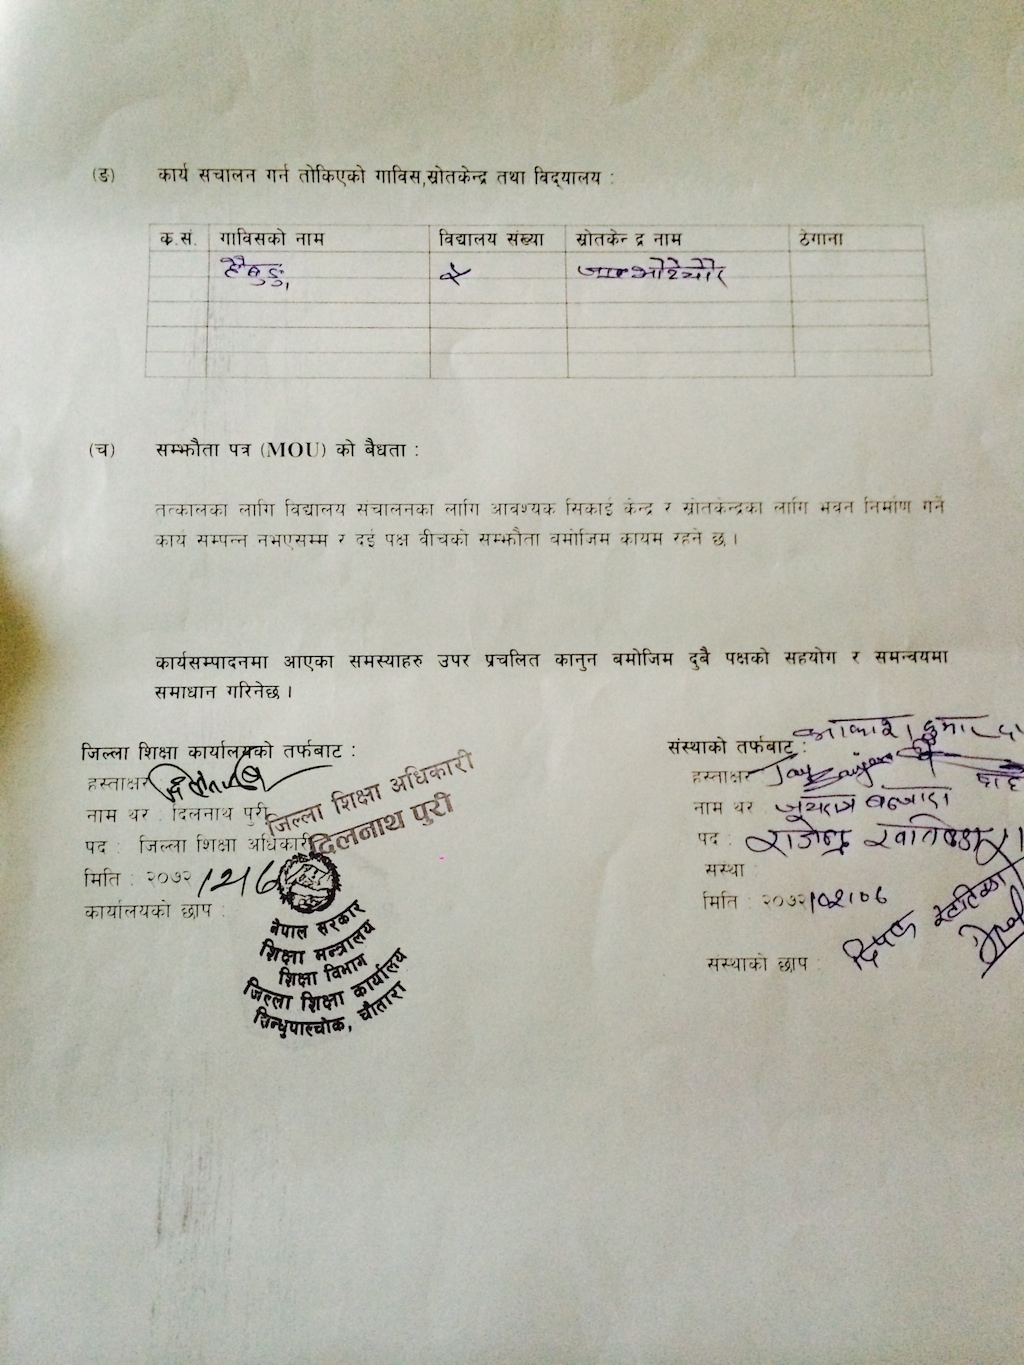 (ङ) कार्य सचालन गर्न तोकिएको गाविस,स्रोतकेन्द्र तथा विद्यालय :
क.सं. गाविसको नाम विद्यालय संख्या स्रोतकेन्द्र नाम ठेगाना
(च) सम्झौता पत्र (MOU) को बैधता :
तत्कालका लागि विद्यालय संचालनका लागि आवश्यक सिकाई केन्द्र र स्रोतकेन्द्रका लागि भवन निर्माण गर्ने
कार्य सम्पन्न नभएसम्म र दुई पक्ष वीचको सम्झौता बमोजिम कायम रहने छ ।
कार्यसम्पादनमा आएका समस्याहरु उपर प्रचलित कानुन बमोजिम दुबै पक्षको सहयोग र समन्वयमा
समाधान गरिनेछ ।
जिल्ला शिक्षा कार्यालयको तर्फबाट :
हस्ताक्षर
नाम थर : दिलनाथ पुरी
पद : जिल्ला शिक्षा अधिकारी
मिति : २०७२/२/६
कार्यालयको छाप :
जिल्ला शिक्षा अधिकारी
दिलनाथ पुरी
नेपाल सरकार
शिक्षा मन्त्रालय
शिक्षा विभाग
जिल्ला शिक्षा कार्यालय
सिन्धुपाल्चोक, चौतारा
संस्थाको तर्फबाट :
हस्ताक्षर
नाम थर जयराज बन्जारा
पद : राजेन्द्र
सस्था
मिति : २०७२/०२/०६
संस्थाको छाप :